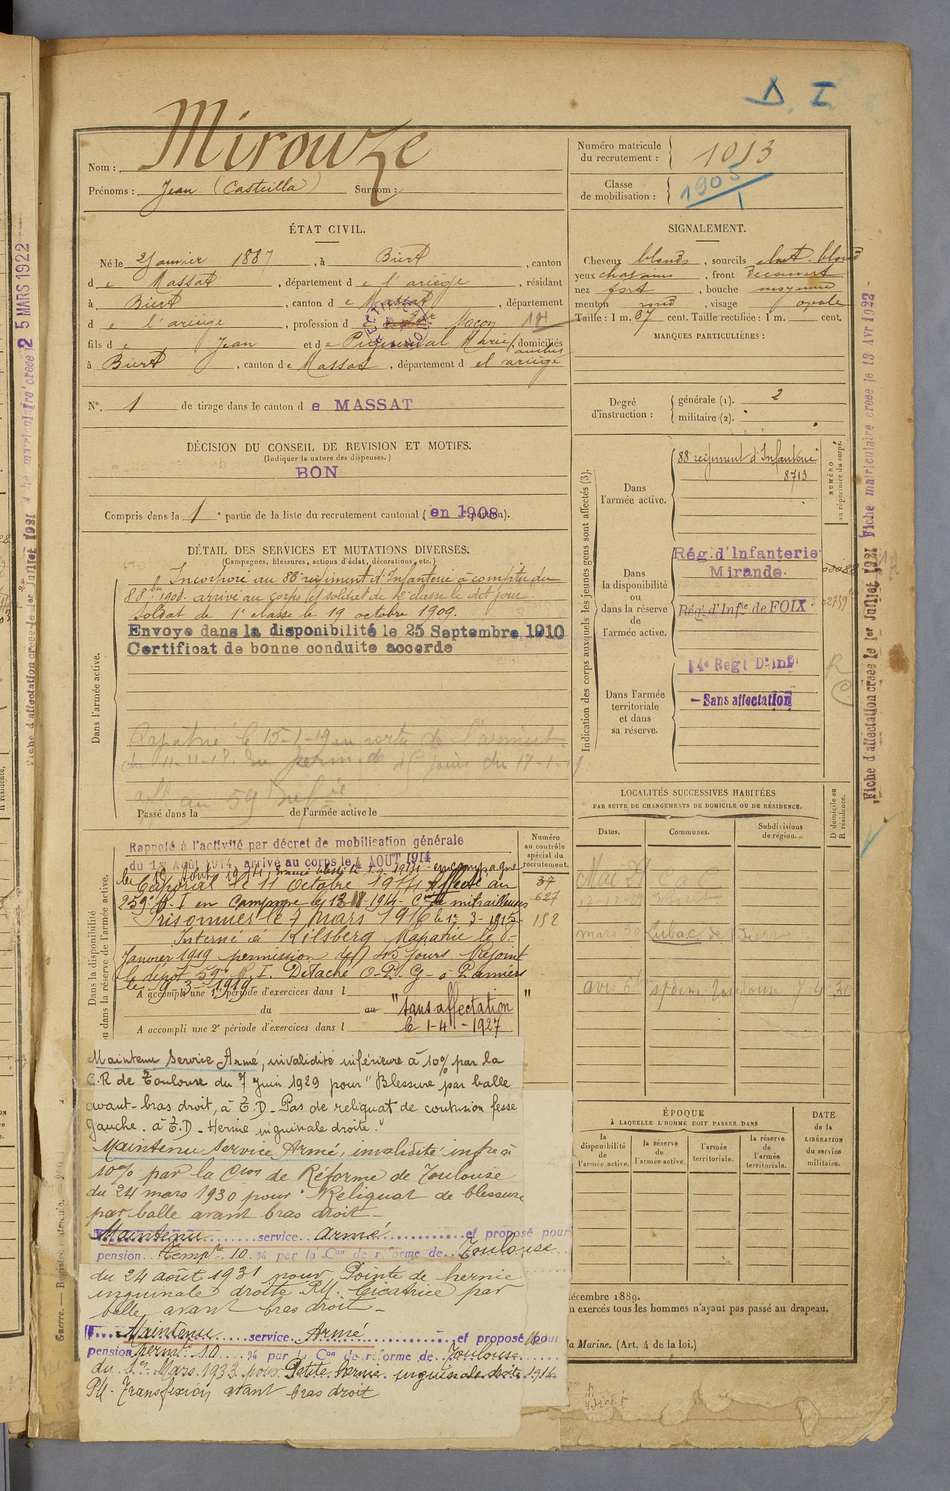 Δ. I
Nom : Mirouze
Prénoms : Jean (Casteilla) Surnom :
Numéro matricule du recrutement : 1013
Classe de mobilisation : 1905
ÉTAT CIVIL.
Né le 2 Janvier 1887, à Biert, canton
de Massat, département de l'ariège, résidant
à Biert, canton de Massat, département
de l'ariège, profession de Maçon
fils de Jean et de Marie, domiciliés
à Biert, canton de Massat, département de l'ariège
N°. 1 de tirage dans le canton de MASSAT
SIGNALEMENT.
Cheveux blonds, sourcils chat. blond
yeux chatains, front découvert
nez fort, bouche moyenne
menton rond, visage ovale
Taille : 1 m. 67 cent. Taille rectifiée : 1 m. cent.
MARQUES PARTICULIÈRES :
Degré d'instruction : générale (1). 2
militaire (2).
DÉCISION DU CONSEIL DE REVISION ET MOTIFS.
(Indiquer la nature des dispenses.)
BON
Compris dans la 1e partie de la liste du recrutement cantonal (en 1908
DÉTAIL DES SERVICES ET MUTATIONS DIVERSES.
(Campagnes, blessures, actions d'éclat, décorations, etc.)
Dans l'armée active.
Incorporé au 88e régiment d'Infanterie à compter du
8 8bre 1908. arrivé au corps et soldat de 2e classe le dit jour
Soldat de 1e classe le 19 octobre 1909.
Envoyé dans la disponibilité le 25 Septembre 1910
Certificat de bonne conduite accordé
Rapatrié le 15-1-19
du 11-11-18. En perm. de 45 jours du 17-1-19
au 59e
Passé dans la de l'armée active le
Dans la disponibilité ou dans la réserve de l'armée active.
Numéro au contrôle spécial du recrutement.
Rappelé à l'activité par décret de mobilisation générale
du 1er Août 1914, arrivé au corps le 4 AOUT 1914
Caporal le 11 Octobre 1914 Affecté au
259e R.I en Campagne le 12-11-1914- Cie de mitrailleuses
Prisonnier le 7 mars 1916
Interné à Kilsberg Rapatrié le 8-
Janvier 1919 permission de 45 jours Rejoint
le dépôt 59e R.I. Détaché O.P.G. à Pamiers
le 19-3-1919
37
627
152
A accompli une 1e période d'exercices dans l
du au "sans affectation"
A accompli une 2e période d'exercices dans l le 1-4-1927
Maintenu Service Armé, invalidité inférieure à 10% par la
C.R de Toulouse du 7 Juin 1929 pour "Blessure par balle
avant-bras droit, à E.D - Pas de reliquat de contusion fesse
gauche. à E.D - Hernie inguinale droite."
Maintenu Service Armé, invalidité infre à
10% par la Cion de Réforme de Toulouse
du 24 mars 1930 pour Reliquat de blessure
par balle avant bras droit -
Maintenu service armé et proposé pour
pension tempre 10 % par la Con de réforme de Toulouse
du 24 août 1931 pour Pointe de hernie
inguinale droite P.M. Cicatrice par
balle avant bras droit -
Maintenu service Armé et proposé pour
pension permte 10 % par la Con de réforme de Toulouse
du 1er Mars 1933 pour Petite hernie inguinale droite
Transfixion avant bras droit
Indication des corps auxquels les jeunes gens sont affectés (3).
NUMÉRO au répertoire du corps.
Dans l'armée active.
88 régiment d'Infanterie
8713
Dans la disponibilité ou dans la réserve de l'armée active.
Rég. d'Infanterie
Mirande.
Rég. d'Infie de FOIX
Dans l'armée territoriale et dans sa réserve.
14e Regt D'infie
- Sans affectation
LOCALITÉS SUCCESSIVES HABITÉES
PAR SUITE DE CHANGEMENTS DE DOMICILE OU DE RÉSIDENCE.
Dates. Communes. Subdivisions de région. D domicile ou R résidence.
ÉPOQUE
À LAQUELLE L'HOMME DOIT PASSER DANS
la disponibilité de l'armée active.
la réserve de l'armée active.
l'armée territoriale.
la réserve de l'armée territoriale.
DATE de la LIBÉRATION du service militaire.
décembre 1889.
n exercés tous les hommes n'ayant pas passé au drapeau.
la Marine. (Art. 4 de la loi.)
Fiche d'affectation créée le 1er Juillet 1921 Fiche matriculaire créée le 13 Avr 1922
25 MARS 1922